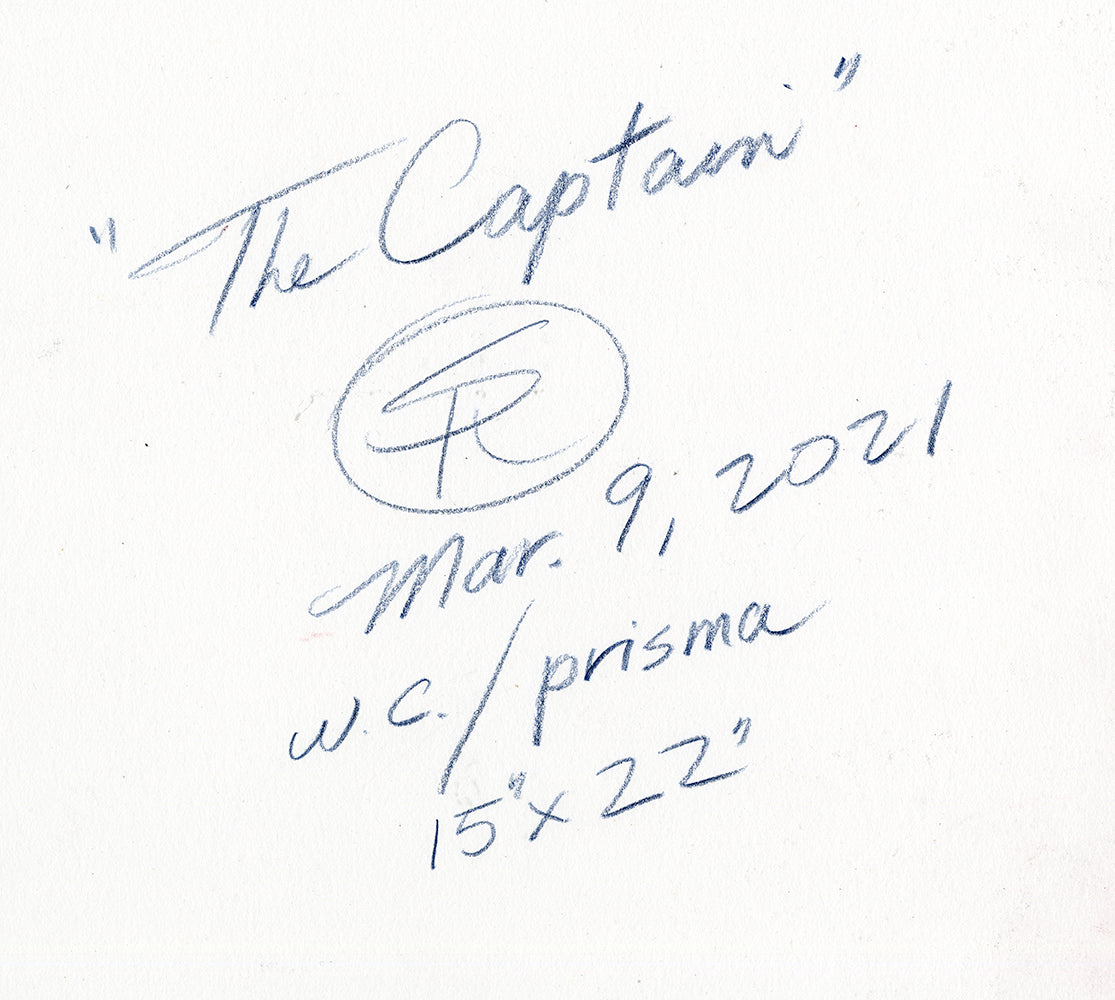 "The Captain"
Mar. 9, 2021
w.c./prisma
15"x22"